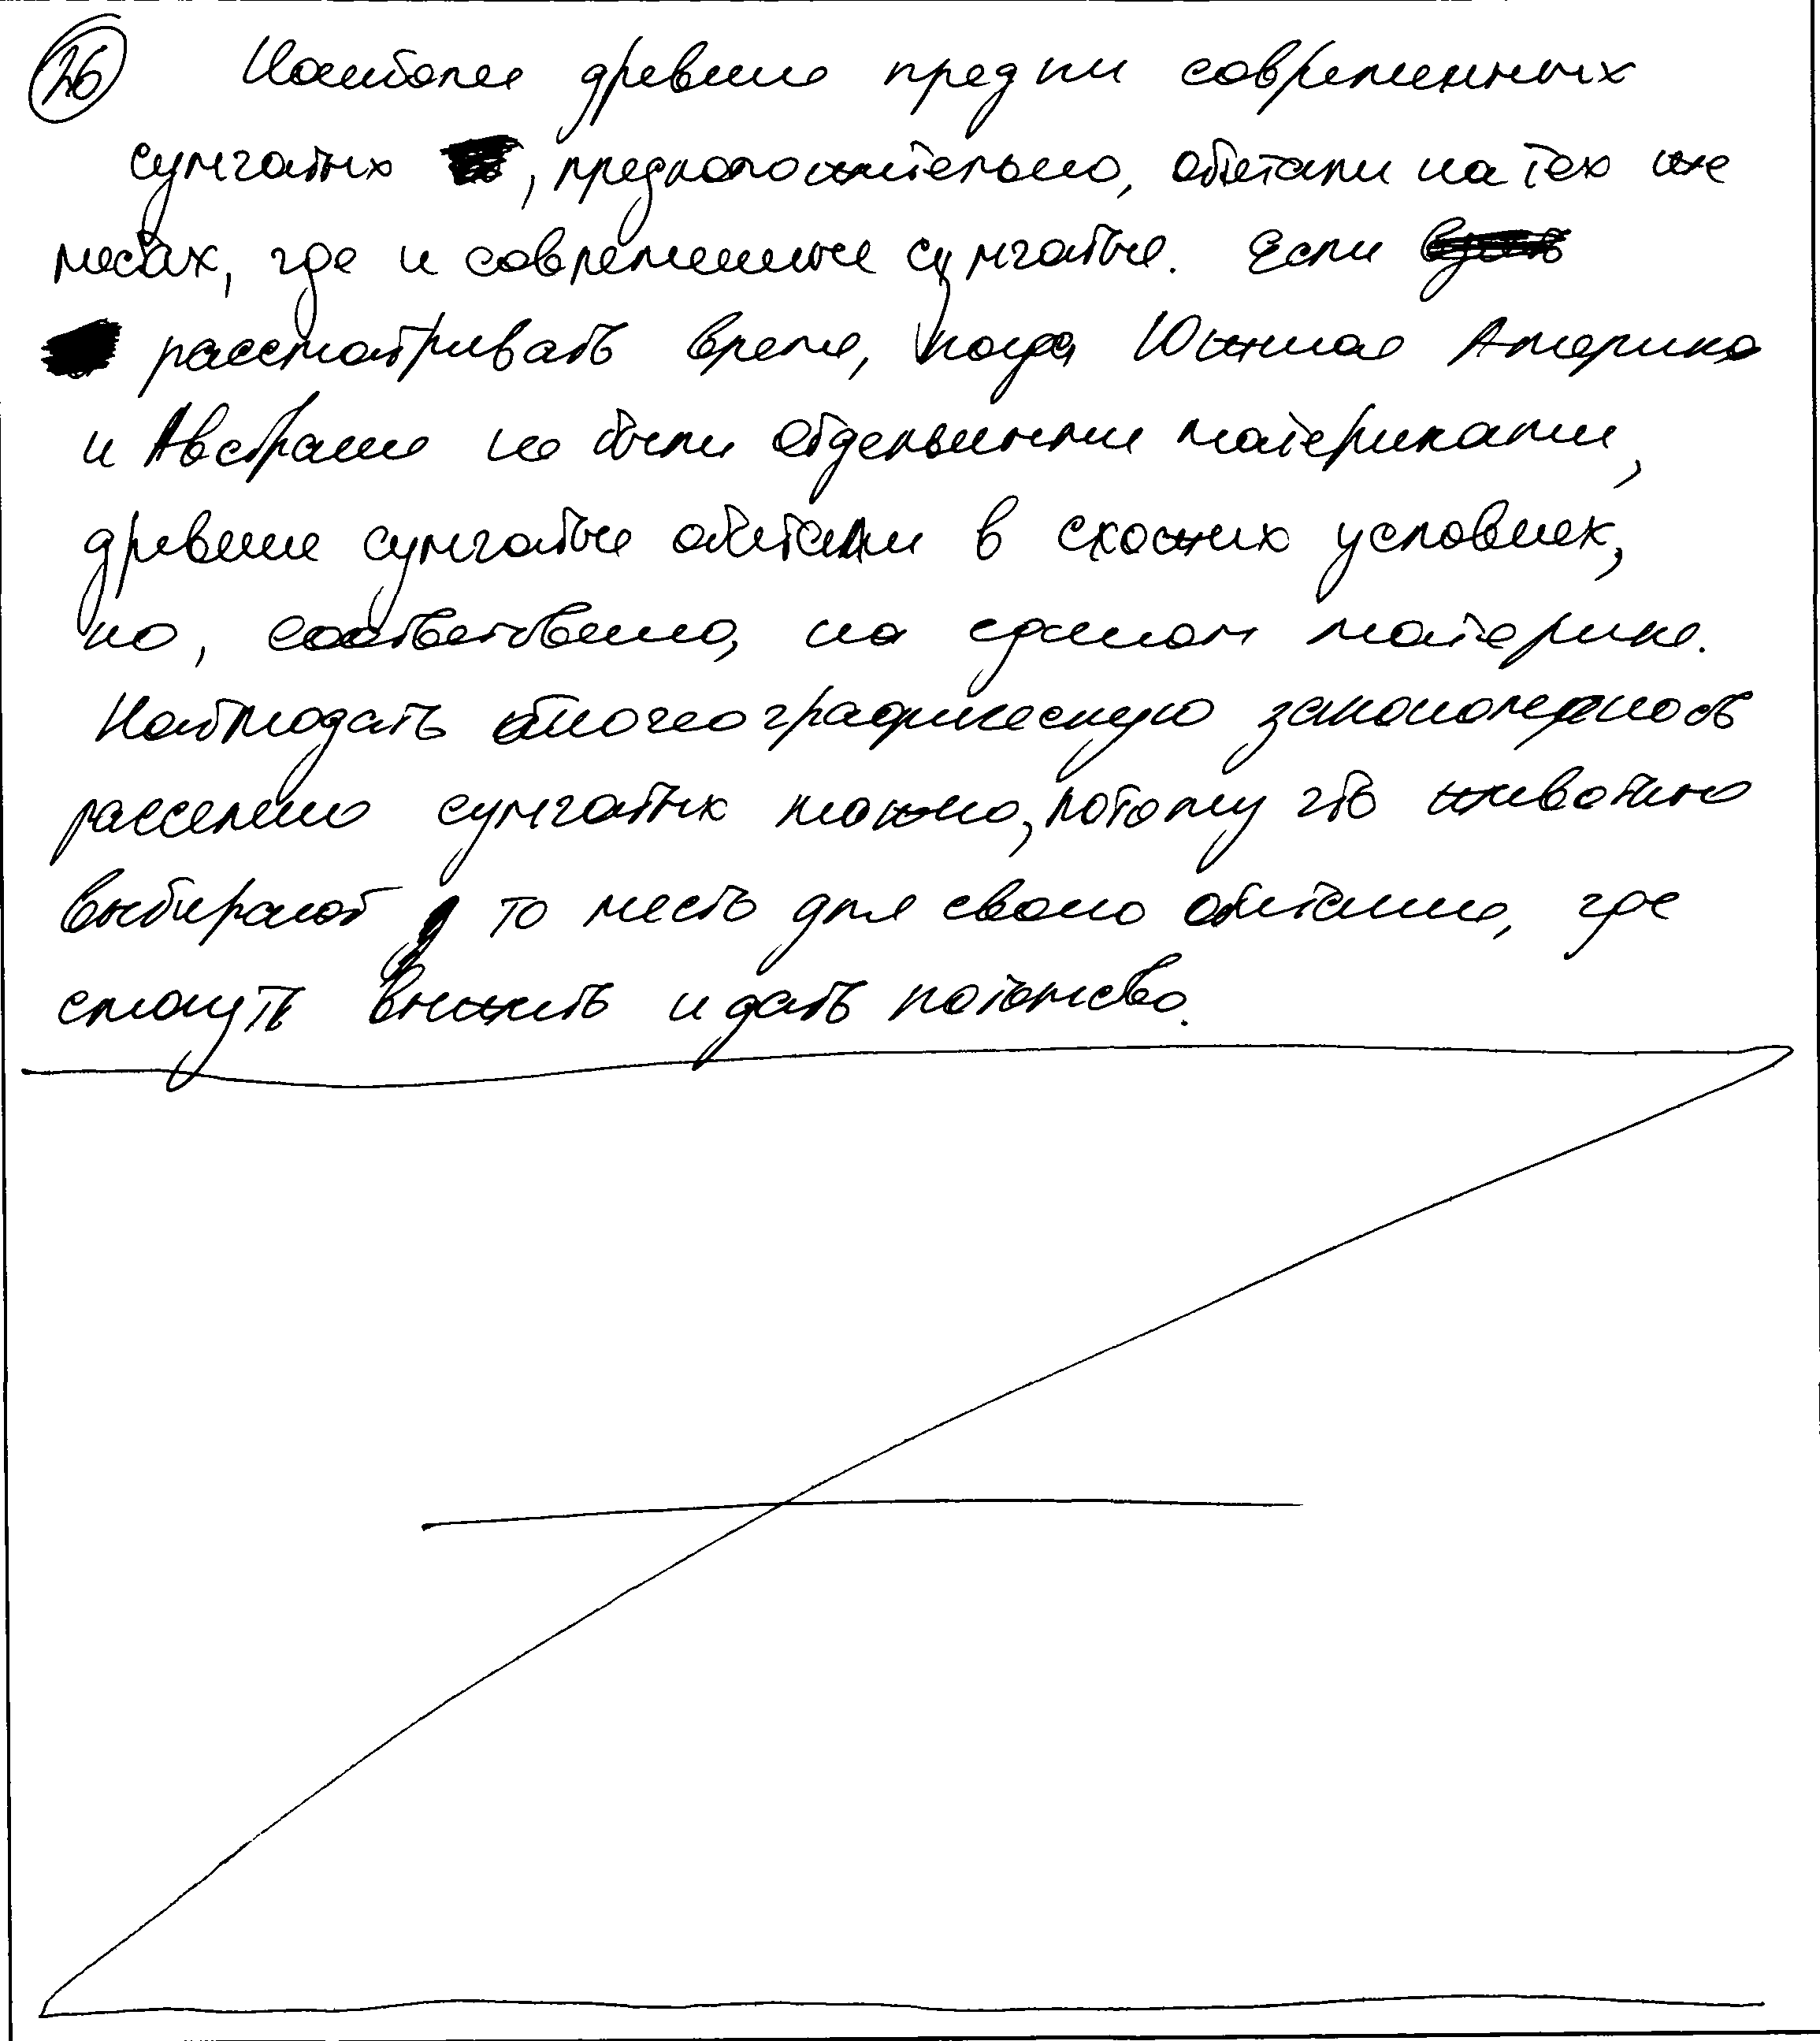 26 Наиболее древние предки современных
сумчатых, предположительно, обитали на тех же
местах, где и современные сумчатые. Если
рассматривать время, когда Южная Америка
и Австралия не были отдельными материками,
древние сумчатые обитали в схожих условиях,
но, соответственно, на едином материке.
Наблюдать биогеографическую закономерность
расселения сумчатых можно, потому что животные
выбирают то место для своего обитания, где
смогут выжить и дать потомство.